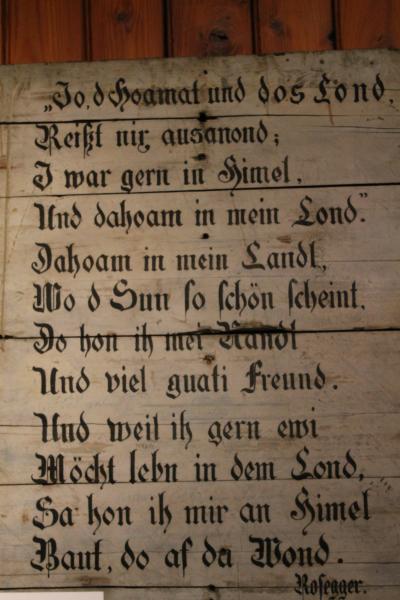 „Jo, d Hoamat und dos Lond,
Reißt nix ausanond;
I war gern in Himel,
Und dahoam in mein Lond.“
Dahoam in mein Landl,
Wo d Sun so schön scheint,
Do hon ih mei Nandl
Und viel guati Freund.
Und weil ih gern ewi
Möcht lebn in dem Lond,
Sa hon ih mir an Himel
Baut, do af da Wond.
Rosegger.